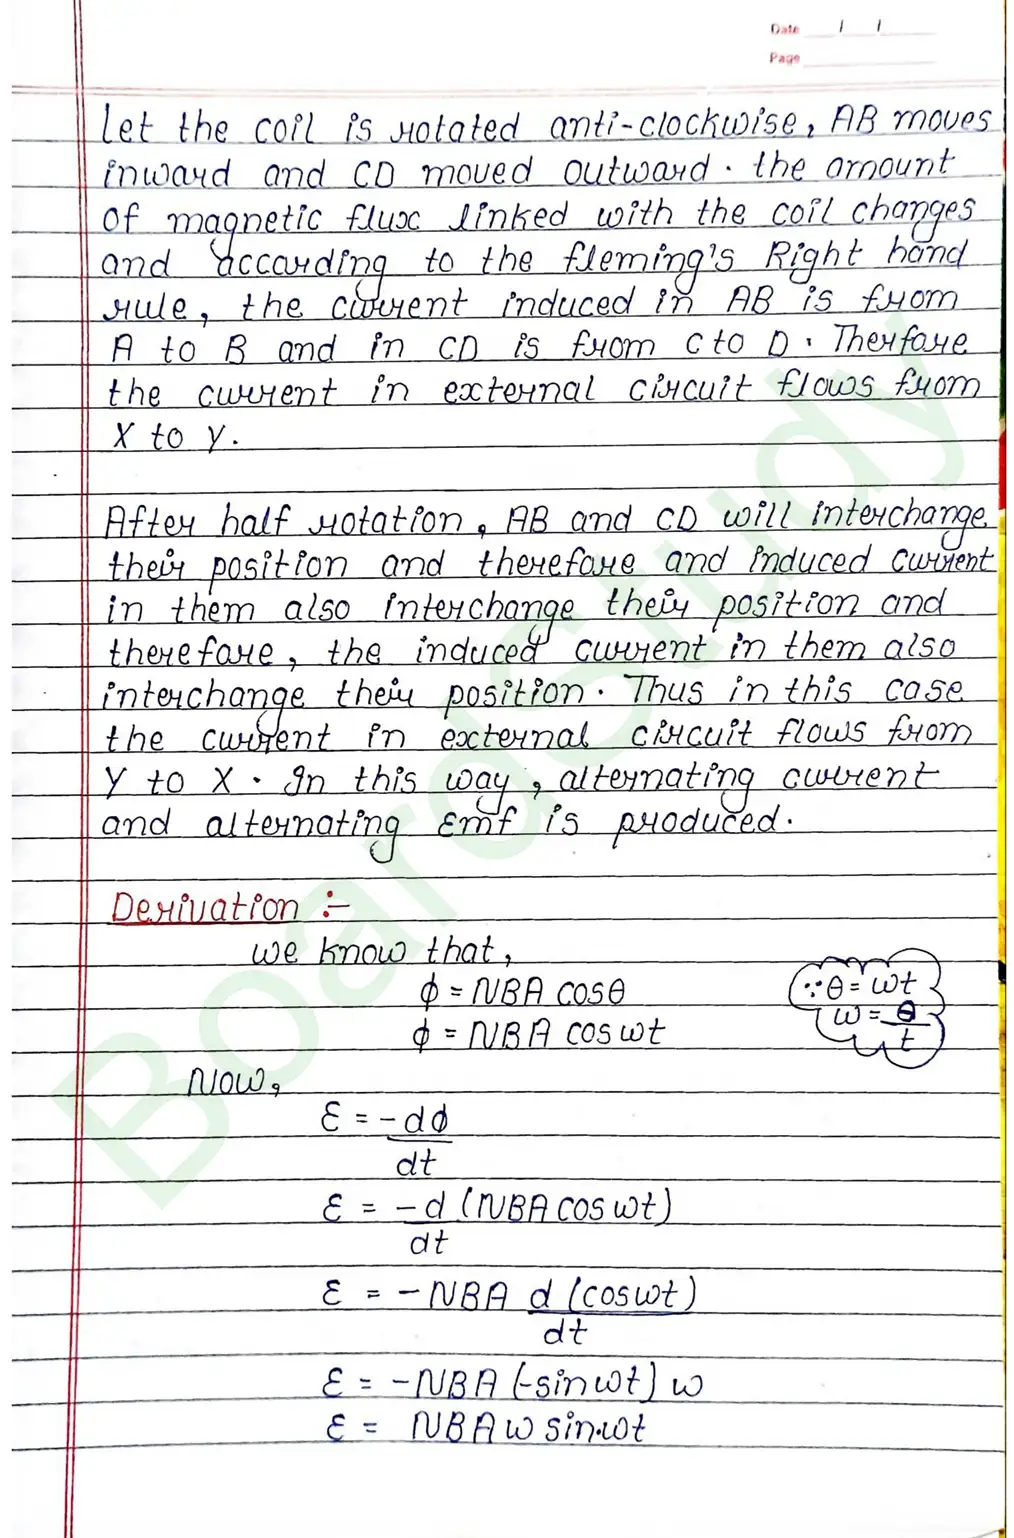 Date / /
Page
Let the coil is rotated anti-clockwise, AB moves
inward and CD moved outward. the amount
of magnetic flux linked with the coil changes
and according to the fleming's Right hand
rule, the current induced in AB is from
A to B and in CD is from C to D. Therfore
the current in external circuit flows from
X to Y.
After half rotation, AB and CD will interchange
their position and therefore and induced current
in them also interchange their position and
therefore, the induced current in them also
interchange their position. Thus in this case
the current in external circuit flows from
Y to X. In this way, alternating current
and alternating Emf is produced.
Derivation :-
we know that,
ϕ = NBA cosθ
∵ θ = ωt
ω = θ/t
ϕ = NBA cos ωt
Now,
ε = -dϕ/dt
ε = -d/dt (NBA cos ωt)
ε = -NBA d(cosωt)/dt
ε = -NBA (-sin ωt) ω
ε = NBA ω sin.ωt
BoardStudy